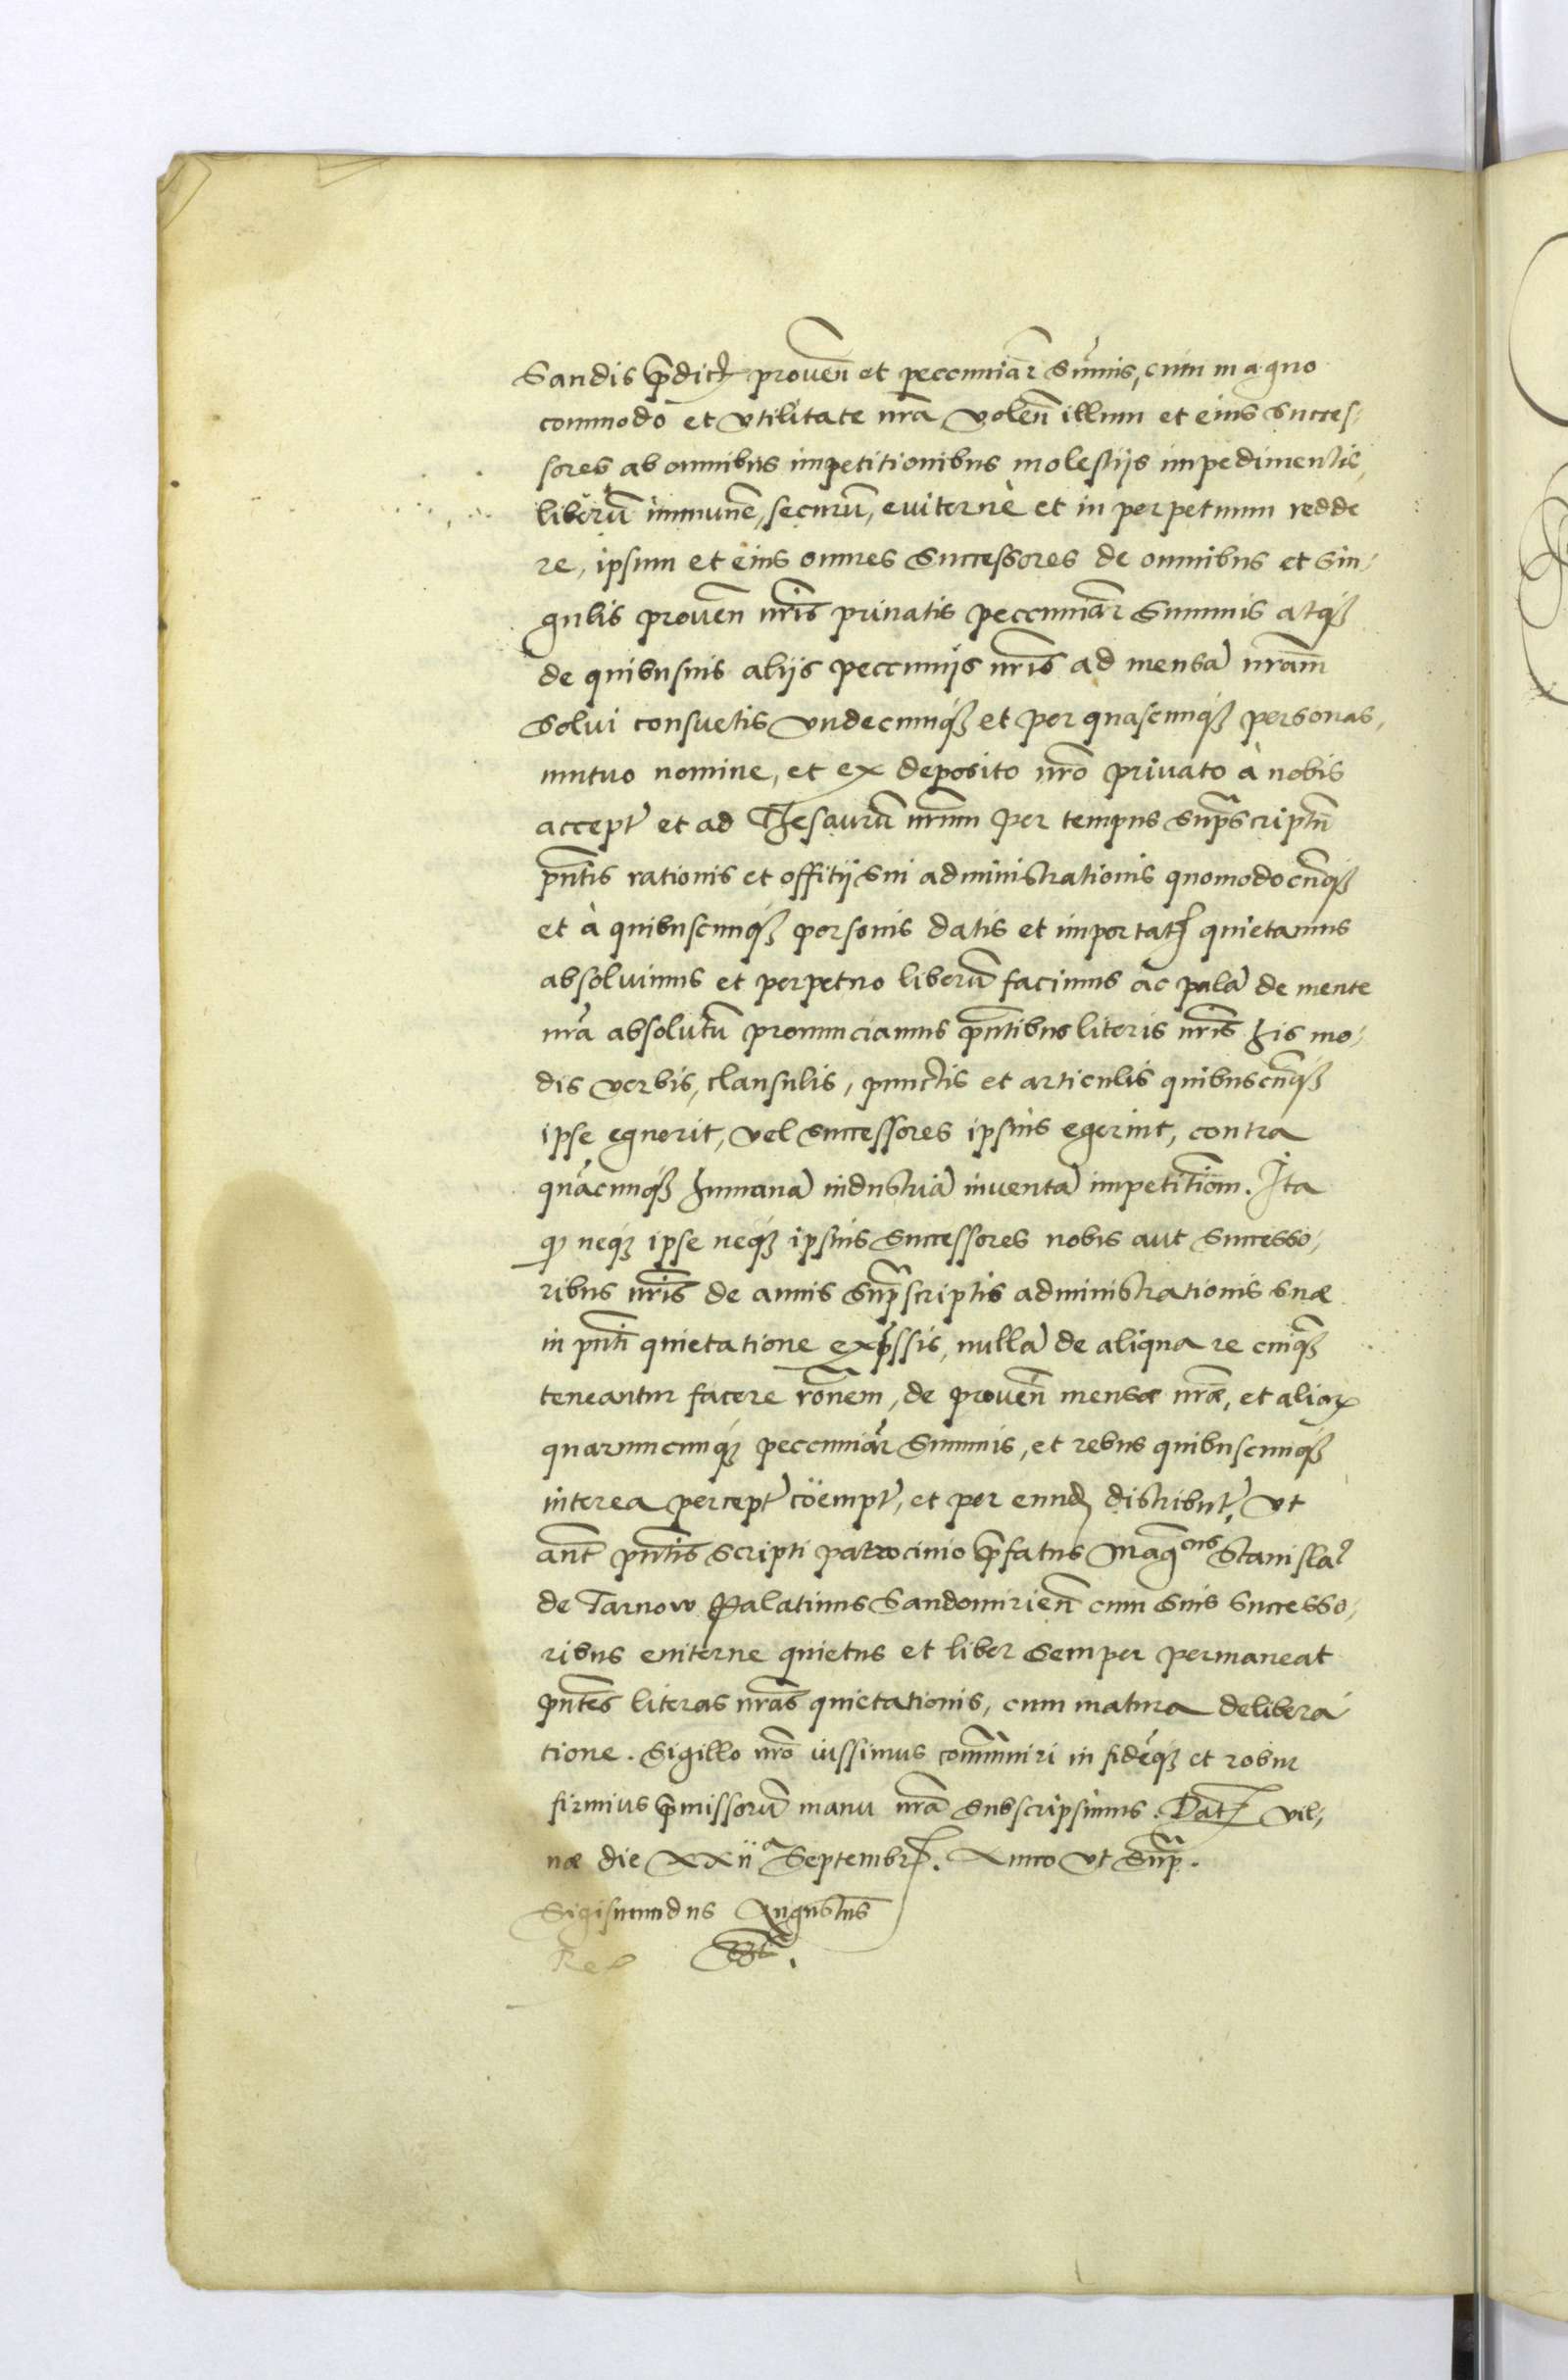 Sandis p̄dict̄ prouen̄ et peccuniar̄ sum̄is, cum magno
commodo et vtilitate nr̄a volen̄ illum et eius succes-
sores ab omnibus impetitionibus molestijs impedimentis,
liberū immunē, securū, euiternè et in perpetuum redde
re, ipsum et eius omnes successores de omnibus et sin-
gulis prouen̄ nr̄is priuatis peccuniar̄ summis atq́₃
de quibusuis alijs peccunijs nr̄is ad mensā nr̄am
solui consuetis vndecunq́₃ et per quascunq́₃ personas,
mutuo nomine, et ex deposito nr̄o priuato à nobis
accept̄ et ad Thesaurū nr̄um per tempus sup̄scriptū
pn̄tis rationis et offitij sui administrationis quomodocūq́₃
et à quibuscunq́₃ personis datis et importat̄ quietamus
absoluimus et perpetuo liberū facimus ac palā de mente
nr̄a absolutū pronunciamus pn̄tibus literis nr̄is his mo-
dis verbis, clausulis, punctis et articulis quibuscūq́₃
ipse eguerit, vel successores ipsius egerint, contra
quācunq́₃ humanā industriā inuentā impetitiōm. Ita
q̄ neq́₃ ipse neq́₃ ipsius successores nobis aut successo-
ribus nr̄is de annis sup̄scriptis administrationis suæ
in pn̄ti quietatione exp̄ssis, nullā de aliqua re cuiq̄₃
teneantur facere rōnem, de prouen̄ mensæ nr̄æ, et alioꝝ
quarumcunq́₃ peccuniar̄ summis, et rebus quibuscunq́₃
interea percept̄ cöempt̄, et per eund₃ distribut̄, vt
ant̄ pn̄tis scripti patrocinio p̄fatus Maḡcus Stanisla9
de Tarnow Palatinus Sandomirien̄ cum suis successo-
ribus euiterne quietus et liber semper permaneat
pn̄tes literas nr̄as quietationis, cum matura delibera-
tione. Sigillo nr̄o iussimus com̄uniri in fidéq₃ et robur
firmius p̄missorū manu nr̄a subscripsimus. Dat̄ Vil-
næ die XXiia Septembr̄. Anno vt sup̄.
Sigismundus Augustus
Rex